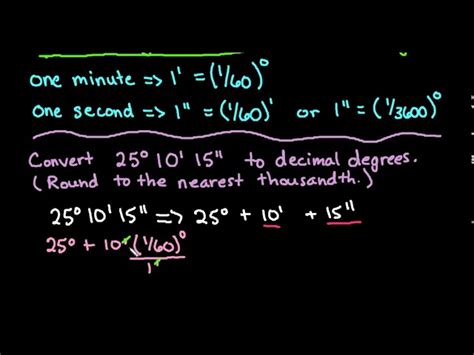 one minute => 1' = (1/60)°
one second => 1" = (1/60)' or 1" = (1/3600)°
Convert 25° 10' 15" to decimal degrees.
(Round to the nearest thousandth.)
25° 10' 15" => 25° + 10' + 15"
25° + 10' (1/60)°
1'